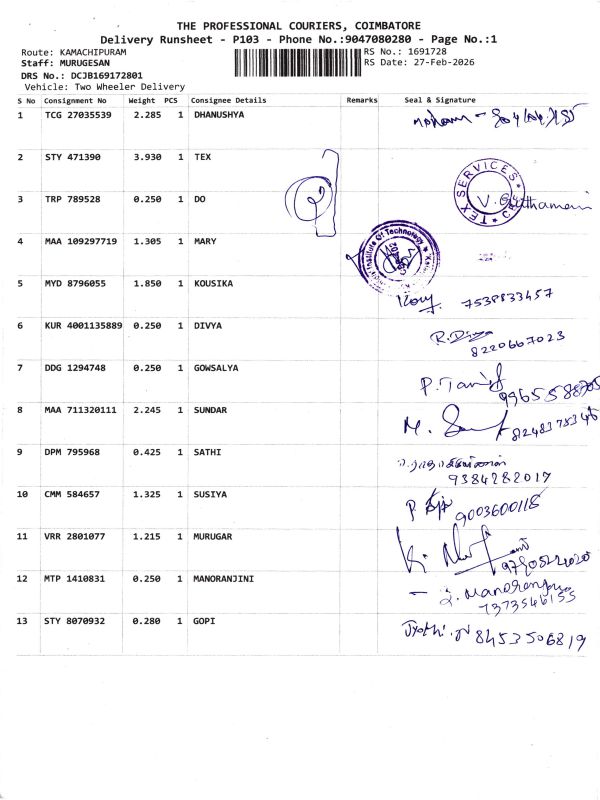 THE PROFESSIONAL COURIERS, COIMBATORE
Delivery Runsheet - P103 - Phone No.:9047080280 - Page No.:1
Route: KAMACHIPURAM RS No.: 1691728
Staff: MURUGESAN RS Date: 27-Feb-2026
DRS No.: DCJB169172801
Vehicle: Two Wheeler Delivery
S No Consignment No Weight PCS Consignee Details Remarks Seal & Signature
1 TCG 27035539 2.285 1 DHANUSHYA
2 STY 471390 3.930 1 TEX
TEX SERVICES
3 TRP 789528 0.250 1 DO
4 MAA 109297719 1.305 1 MARY
Institute Of Technology
5 MYD 8796055 1.850 1 KOUSIKA
7538833457
6 KUR 4001135889 0.250 1 DIVYA
R.Divya
8220667023
7 DDG 1294748 0.250 1 GOWSALYA
8 MAA 711320111 2.245 1 SUNDAR
8248375346
9 DPM 795968 0.425 1 SATHI
9384282017
10 CMM 584657 1.325 1 SUSIYA
9003600118
11 VRR 2801077 1.215 1 MURUGAR
12 MTP 1410831 0.250 1 MANORANJINI
7373546155
13 STY 8070932 0.280 1 GOPI
Jyothi.N 8453506819